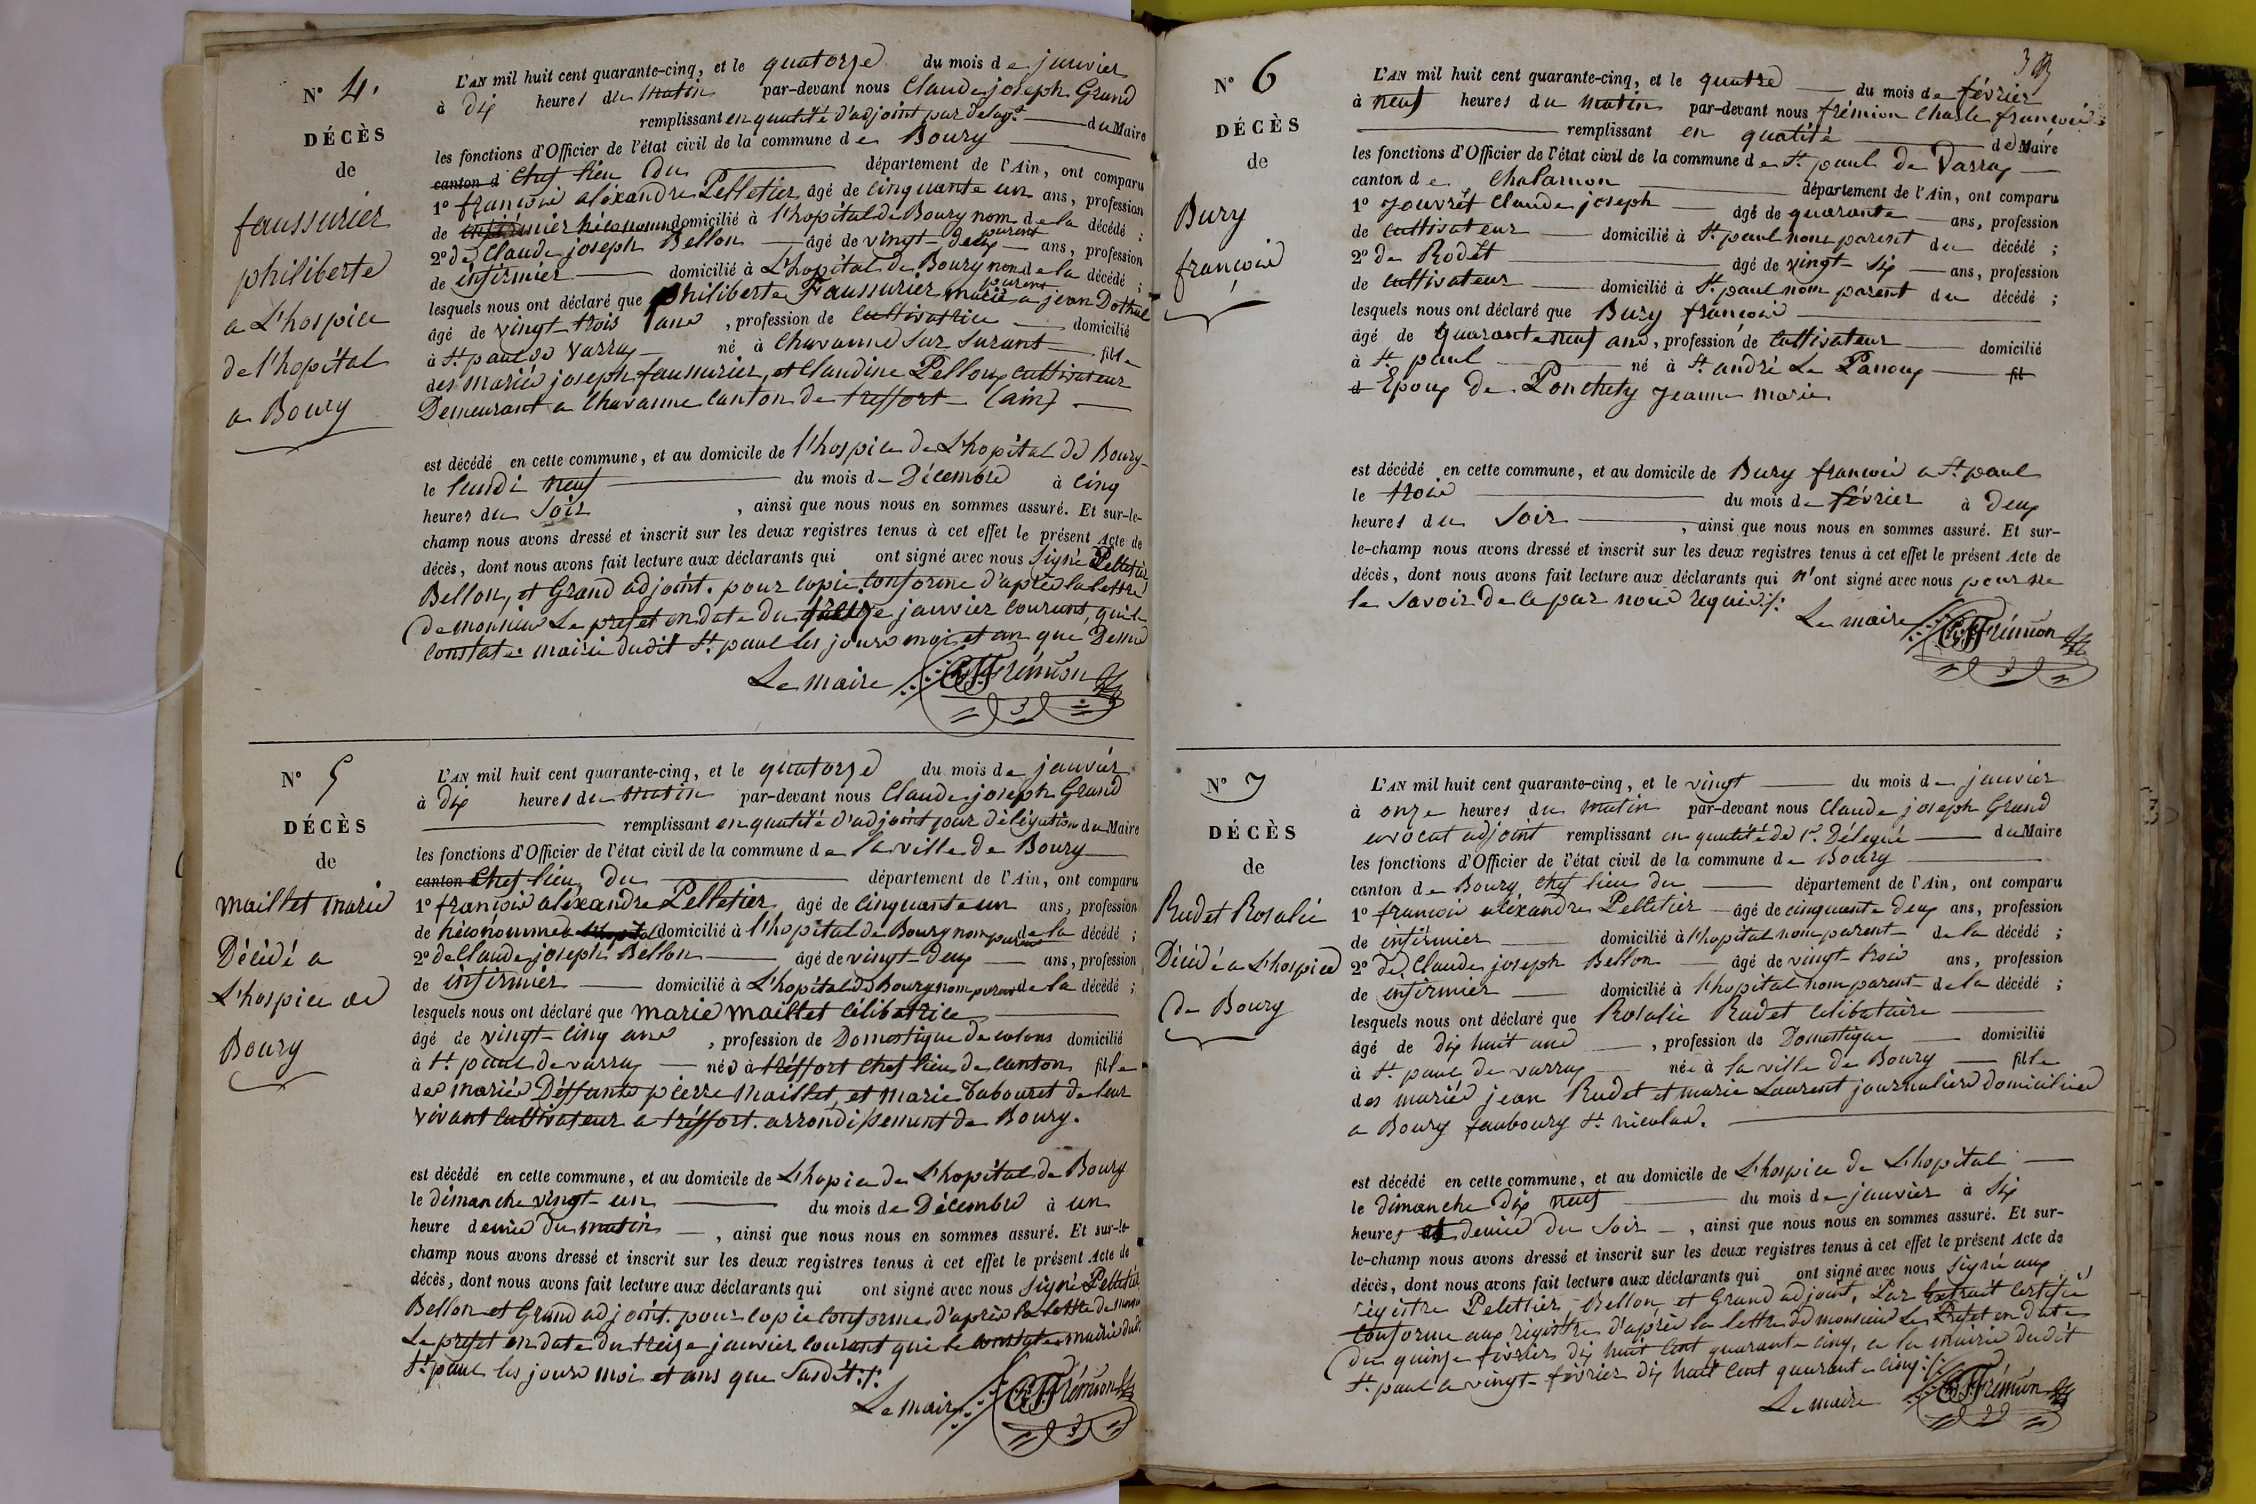 N° 4.
DÉCÈS
de
faussurier
philiberte
a L'hospice
de l'hopital
a Bourg
L'AN mil huit cent quarante-cinq, et le quatorze du mois de janvier
à dix heures du matin par-devant nous Claude joseph Grand
remplissant en qualité d'adjoint par delagt du Maire
les fonctions d'Officier de l'état civil de la commune de Bourg
canton d chef lieu du département de l'Ain, ont comparu
1° francois aléxandre Pelletier âgé de cinquante un ans, profession
de héconnome domicilié à l'hopital de Bourg nom parent de la décédé ;
2° de Claude joseph Bellon âgé de vingt-deux ans, profession
de infirmier domicilié à L'hopital de Bourg nom parent de la décédé ;
lesquels nous ont déclaré que philiberte Faussurier marié a jean Dothal
âgé de vingt-trois ans, profession de Cultivatrice domicilié
à St paul de varras né à Chavanne sur Surant fille
des mariés joseph faussurier, et Claudine Pelloux cultivateur
Demeurant a Chavanne Canton de treffort (ain)
est décédé en cette commune, et au domicile de l'hospice de L'hopital de Bourg
le lundi neuf du mois de Décembre à cinq
heures du Soir, ainsi que nous nous en sommes assuré. Et sur-le-
champ nous avons dressé et inscrit sur les deux registres tenus à cet effet le présent Acte de
décès, dont nous avons fait lecture aux déclarants qui ont signé avec nous Signé Pelletier
Bellon, et Grand adjoint. pour copie Conforme d'après la lettre
de monsieur Le prefet en date du treize janvier courant, qui le
Constate: mairie dudit St paul les jours moi et an que Dessus
Le maire Frémion
N° 5
DÉCÈS
de
maillet marie
Décédé a
L'hospice de
Bourg
L'AN mil huit cent quarante-cinq, et le quatorze du mois de janvier
à dix heures du matin par-devant nous Claude joseph Grand
remplissant en qualité d'adjoint pour délégation du Maire
les fonctions d'Officier de l'état civil de la commune de la ville de Bourg
canton Chef lieu du département de l'Ain, ont comparu
1° francois aléxandre Pelletier âgé de cinquante un ans, profession
de héconomme domicilié à l'hopital de Bourg nom parent de la décédé ;
2° de Claude joseph Bellon âgé de vingt-Deux ans, profession
de infirmier domicilié à L'hopital de Bourg nom parent de la décédé ;
lesquels nous ont déclaré que marie maillet célibatrice
âgé de vingt-cinq ans, profession de Domestique de colons domicilié
à St paul de varras née à tréffort Chef lieu de Canton fille
des mariés Déffunts pierre Maillet, et Marie Tabouret de leur
vivant cultivateur a tréffort. arrondissement de Bourg.
est décédé en cette commune, et au domicile de L'hopice de L'hopital de Bourg
le dimanche vingt-un du mois de Décembre à un
heure demie du matin, ainsi que nous nous en sommes assuré. Et sur-le-
champ nous avons dressé et inscrit sur les deux registres tenus à cet effet le présent Acte de
décès, dont nous avons fait lecture aux déclarants qui ont signé avec nous Signé Pelletier
Bellon et Grand adjoint. pour copie conforme d'après la lettre de monsr
Le prefet en date du treize janvier courant qui le constate mairie dudt
St paul les jours moi et ans que Susdit ./.
Le maire Frémion
38
N° 6
DÉCÈS
de
Bury
francois
L'AN mil huit cent quarante-cinq, et le quatre du mois de février
à neuf heures du matin par-devant nous frémion Charle francois
remplissant en qualité de Maire
les fonctions d'Officier de l'état civil de la commune de St paul de Varras
canton de Chalamon département de l'Ain, ont comparu
1° jouvret Claude joseph âgé de quarante ans, profession
de cultivateur domicilié à St paul nom parent du décédé ;
2° de Rodet âgé de vingt-six ans, profession
de cultivateur domicilié à St paul nom parent du décédé ;
lesquels nous ont déclaré que Bury francois
âgé de quarante neuf ans, profession de Cultivateur domicilié
à St paul né à St andré Le Panoux fil
d Epoux de Ponchety jeanne marie
est décédé en cette commune, et au domicile de Bury francois a St paul
le trois du mois de février à deux
heures du Soir, ainsi que nous nous en sommes assuré. Et sur-
le-champ nous avons dressé et inscrit sur les deux registres tenus à cet effet le présent Acte de
décès, dont nous avons fait lecture aux déclarants qui n'ont signé avec nous pour ne
le savoir de ce par nous requis ./.
Le maire Frémion
N° 7
DÉCÈS
de
Rudet Rosalie
Décédé a L'hospice
de Bourg
L'AN mil huit cent quarante-cinq, et le vingt du mois de janvier
à onze heures du matin par-devant nous Claude joseph Grand
avocat adjoint remplissant en qualité de 1er Délegué du Maire
les fonctions d'Officier de l'état civil de la commune de Bourg
canton de Bourg chef lieu du département de l'Ain, ont comparu
1° francois aléxandre Pelletier âgé de cinquante deux ans, profession
de infirmier domicilié à l'hopital nom parent de la décédé ;
2° de Claude joseph Bellon âgé de vingt trois ans, profession
de infirmier domicilié à l'hopital nom parent de la décédé ;
lesquels nous ont déclaré que Rosalie Rudet celibataire
âgé de dix huit ans, profession de Domestique domicilié
à St paul de varras née à la ville de Bourg fille
des mariés jean Rudet et marie Laurent journaliers domiciliés
a Bourg faubourg St nicolas.
est décédé en cette commune, et au domicile de L'hospice de L'hopital
le dimanche dix neuf du mois de janvier à Six
heures et demie du Soir, ainsi que nous nous en sommes assuré. Et sur-
le-champ nous avons dressé et inscrit sur les deux registres tenus à cet effet le présent Acte de
décès, dont nous avons fait lecture aux déclarants qui ont signé avec nous signé aux
régistre Peletier, Bellon, et Grand adjoint. Par Extrait Certifié
Conforme aux régistre d'après la lettre de monsieur Le Préfet en Date
du quinze février dix huit cent quarante cinq, a la mairie dudit
St paul le vingt-février dix huit cent quarante cinq ./.
Le maire Frémion